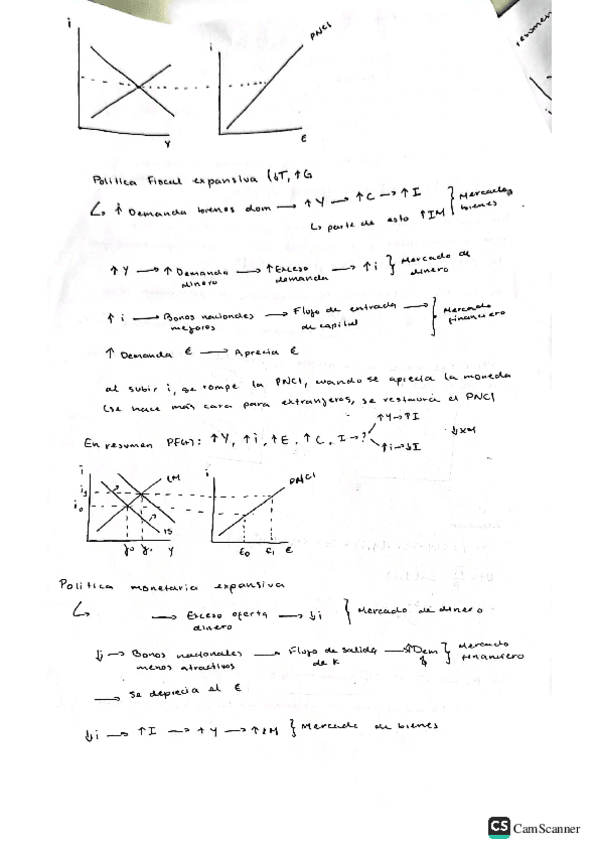 resumen
i
Y
i
PNCI
E
Política Fiscal expansiva (↓T, ↑G
↳ ↑ Demanda bienes dom → ↑Y → ↑C → ↑I } Mercado bienes
↳ parte de esto ↑IM
↑Y → ↑Demanda dinero → ↑Exceso demanda → ↑i } Mercado de dinero
↑i → Bonos nacionales mejores → Flujo de entrada de capital → } Mercado financiero
↑ Demanda € → Aprecia €
al subir i, se rompe la PNCI, cuando se aprecia la moneda
(se hace más cara para extranjeros, se restaura el PNCI
↑Y→↑I
En resumen PF(+): ↑Y, ↑i, ↑E, ↑C, I→?
↑i→↓I
↓XN
i
i₁
i₀
LM
IS
Y₀ Y₁ Y
i
PNCI
E₀ E₁ E
Política monetaria expansiva
↳ → Exceso oferta dinero → ↓i } Mercado de dinero
↓i → Bonos nacionales menos atractivos → Flujo de salida de K → Dem } Mercado financiero
→ Se deprecia el €
↓i → ↑I → ↑Y → ↑IM } Mercado de bienes
CS CamScanner